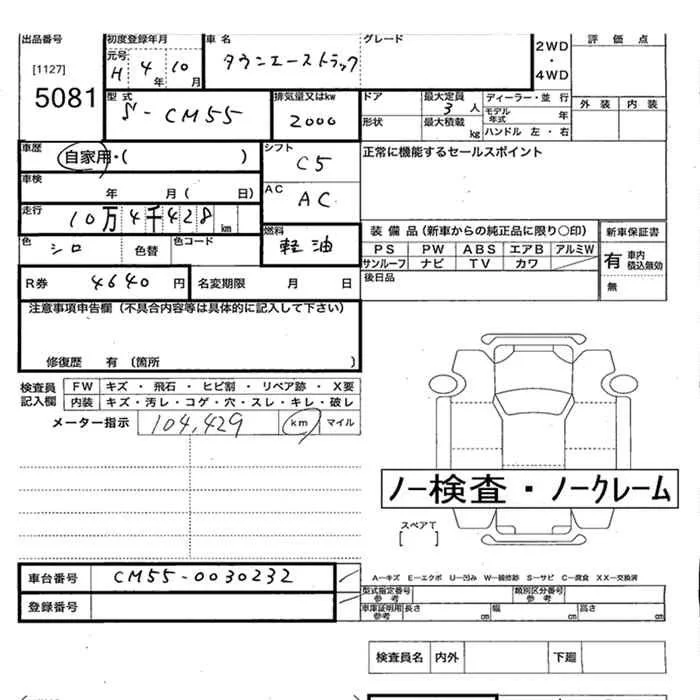 出品番号 初度登録年月 車 名 グレード 評 価 点
元号 H 4 年 10 月 タウンエーストラック 2WD・4WD
[1127]
5081
型 式 排気量又はkw ドア 最大定員 3 人 ディーラー・並 行 外 装 内 装
S-CM55 2000 形状 最大積載 kg モデル年式 年
ハンドル 左・右
車歴 自家用・( ) シフト C5 正常に機能するセールスポイント
車検 年 月( 日) AC AC
走行 10万4千428 km 燃料 軽油 装 備 品 (新車からの純正品に限り○印) 新車保証書
色 シロ 色替 色コード PS PW ABS エアB アルミW 有 車内積込無効
サンルーフ ナビ TV カワ
R券 4640 円 名変期限 月 日 後日品 無
注意事項申告欄 (不具合内容等は具体的に記入して下さい)
修復歴 有 (箇所 )
検査員記入欄 FW キズ ・ 飛石 ・ ヒビ割 ・ リペア跡 ・ X要
内装 キズ・汚レ・コゲ・穴・スレ・キレ・破レ
メーター指示 104,429 km マイル
ノー検査・ノークレーム
スペアT
[ ]
車台番号 CM55-0030232 A―キズ E―エクボ U―凹み W―補修跡 S―サビ C―腐食 XX―交換済
型式指定番号 参考 類別区分番号 参考
登録番号 車庫証明用 参考 長さ cm 幅 cm 高さ cm
検査員名 内外 下廻